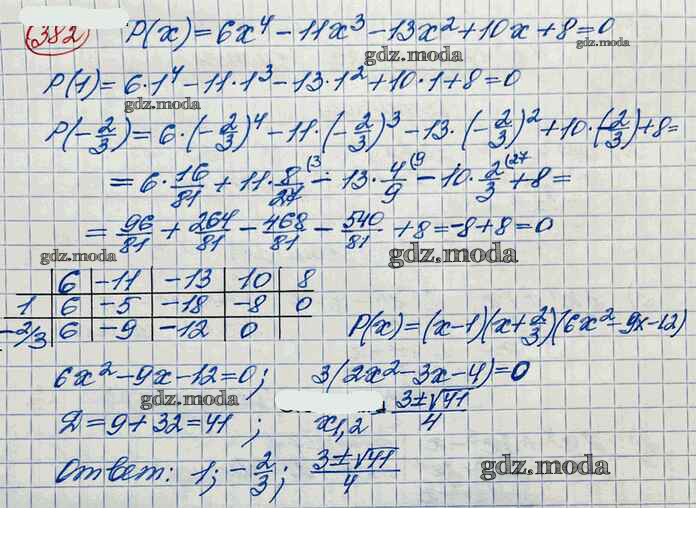 382 P(x)=6x⁴-11x³-13x²+10x+8=0
gdz.moda
P(1)=6·1⁴-11·1³-13·1²+10·1+8=0
gdz.moda
P(-2/3)=6·(-2/3)⁴-11·(-2/3)³-13·(-2/3)²+10·(-2/3)+8=
=6·16/81+11·8/27(3-13·4/9(9-10·2/3(27+8=
=96/81+264/81-468/81-540/81+8=-8+8=0
gdz.moda gdz.moda
6 -11 -13 10 8
1 6 -5 -18 -8 0
-2/3 6 -9 -12 0 P(x)=(x-1)(x+2/3)(6x²-9x-12)
6x²-9x-12=0; 3(2x²-3x-4)=0
gdz.moda
Д=9+32=41; x1,2 3±√41/4
Ответ: 1; -2/3; 3±√41/4
gdz.moda